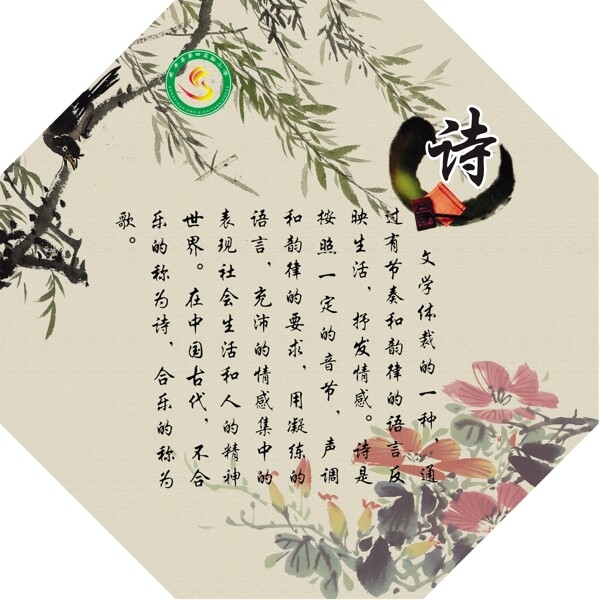 诗
文学体裁的一种，通
过有节奏和韵律的语言反
映生活，抒发情感。诗是
按照一定的音节，声调
和韵律的要求，用凝练的
语言，充沛的情感集中的
表现社会生活和人的精神
世界。在中国古代，不合
乐的称为诗，合乐的称为
歌。